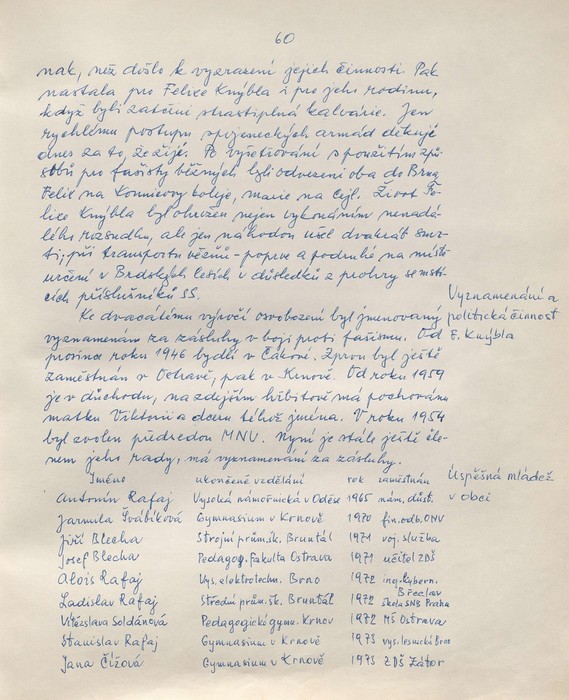 60
nak, než došlo k vyzrazení jejich činnosti. Pak
nastala pro Felice Knýbla i pro jeho rodinu,
když byli zatčeni strastiplná kalvárie. Jen
rychlému postupu spojeneckých armád děkuje
dnes za to, že žije. Po vyšetřování s použitím způ-
sobů pro fašisty běžných byli odvezeni oba do Brna
Felic na Kounicovy koleje, marie na Cejl. Život Fe-
lice Knýbla byl ohrožen nejen vykonáním nenadá-
lého rozsudku, ale jen náhodou ušel dvakrát smr-
ti; při transportu vězňů - poprve a podruhé na místě
určení v Brdských lesích v důsledků z prohry se mstí-
cích příslušníků SS.
Ke dvacátému výročí osvobození byl jmenovaný
vyznamenám za zásluhy v boji proti fašismu. Od
prosince roku 1946 bydlí v Čákové. Zprvu byl ještě
zaměstnán v Ostravě, pak v Krnově. Od roku 1959
je v důchodu, na zdejším hřbitově má pochovánu
matku Viktorii a dceru téhož jména. V roku 1954
byl zvolen předsedou MNV. Nyní je stále ještě čle-
nem jeho rady, má vyznamenání za zásluhy.
Vyznamenání a
politická činnost
F. Knýbla
Jméno ukončené vzdělání rok zaměstnán
Antonín Rafaj Vysoká námořnická v Oděse 1965 nám. důst.
Jarmila Švábíková Gymnasium v Krnově 1970 fin. odb. ONV
Jiří Blecha Strojní prům. šk. Bruntál 1971 voj. služba
Josef Blecha Pedagog. fakulta Ostrava 1971 učitel ZDŠ
Alois Rafaj Vys. elektrotechn. Brno 1972 ing. kybern. Břeclav
Ladislav Rafaj Střední prům. šk. Bruntál 1972 škola SNB Praha
Vítězslava Soldánová Pedagogické gymn. Krnov 1972 MŠ Ostrava
Stanislav Rafaj Gymnasium v Krnově 1973 vys. lesnická Brno
Jana Čížová Gymnasium v Krnově 1973 ZDŠ Zátor
Úspěšná mládež
v obci